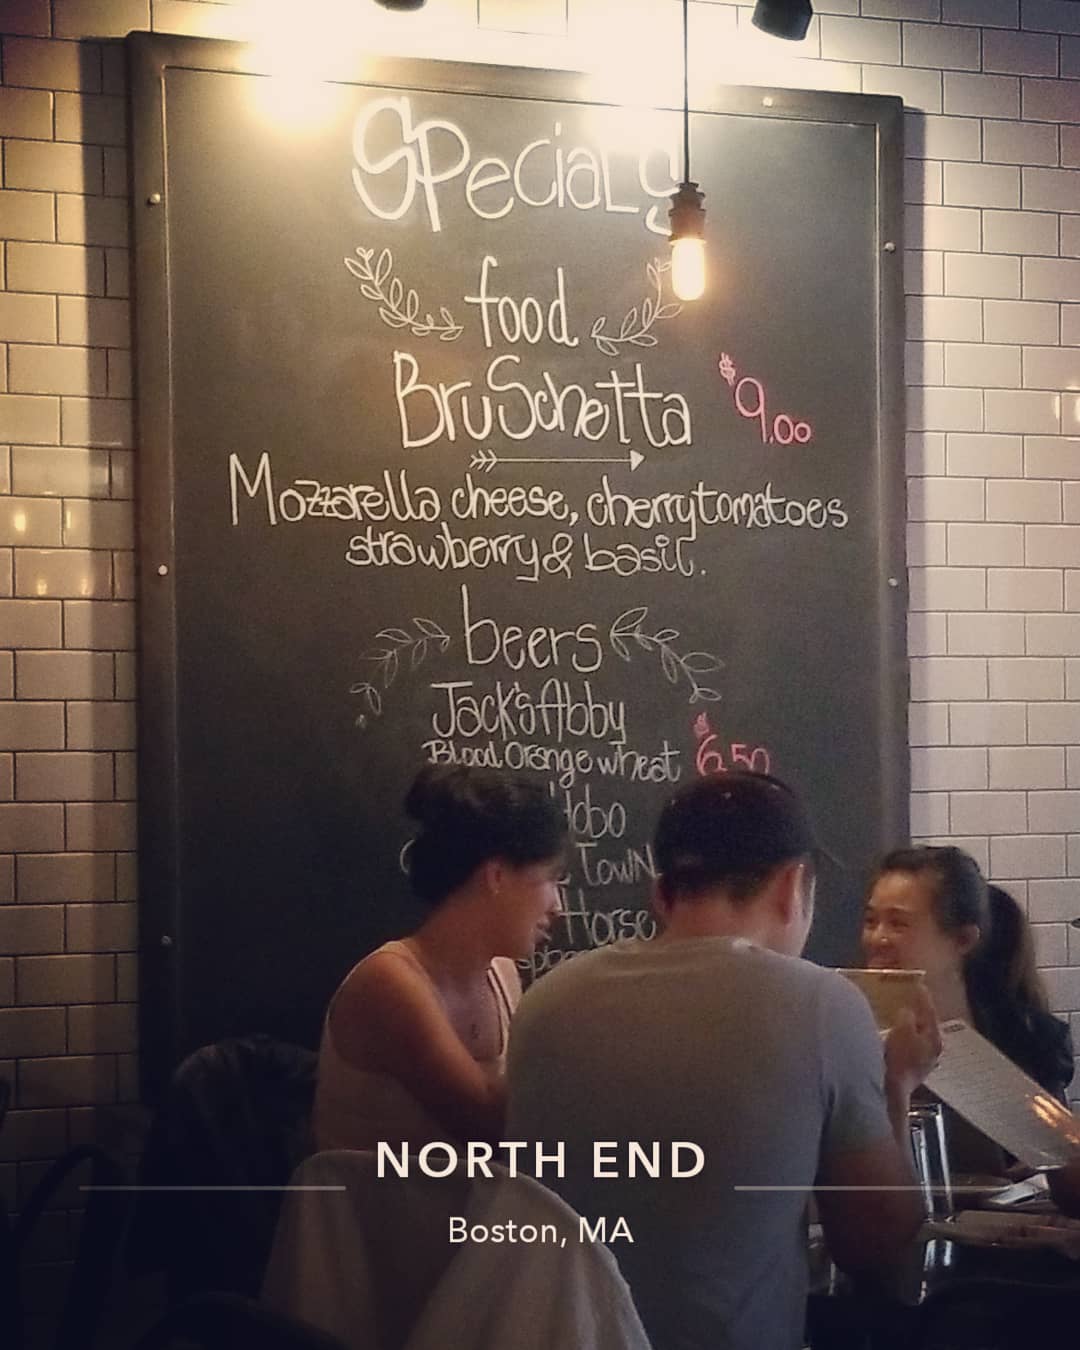 Specials
food
BruSchetta $9.00
Mozzarella cheese, cherry tomatoes
strawberry & basil.
beers
Jack's Abby
Blood Orange wheat $6.50
Hobo
Town
Horse
NORTH END
Boston, MA